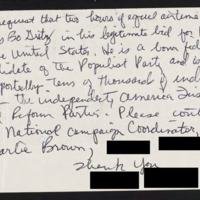 request that two hours of equal airtime
s Bo Gritz in his legitimate bid for
e United States. He is a bona fide
didate of the Populist Party and
portedly tens of thousands of inde
the independent, America
Reform Parties. Please cont
National Campaign Coordinator,
arlie Brown,
Thank You